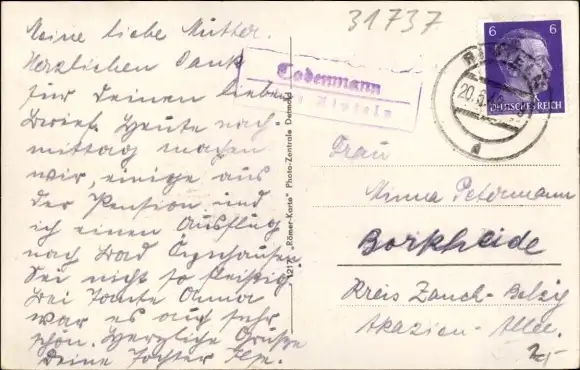 Meine liebe Mutter.
Herzlichen Dank
für Deinen lieben
Brief. Heute nach-
mittag machen
wir, einige aus
der Pension und
ich einen Ausflug
nach Bad Oeynhausen
Sei nicht so fleißig
Bei Tante Anna
war es auch sehr
schön. Herzliche Grüße
Deine Tochter Ilse.
31737
Todenmann
Rinteln
6 6
DEUTSCHES REICH
20.5.
d
1217 "Römer-Karte" Photo-Zentrale Detmold
Frau
Minna Petermann
Borkheide
Kreis Zauch-Belzig
Akazien-Allee.
2,-